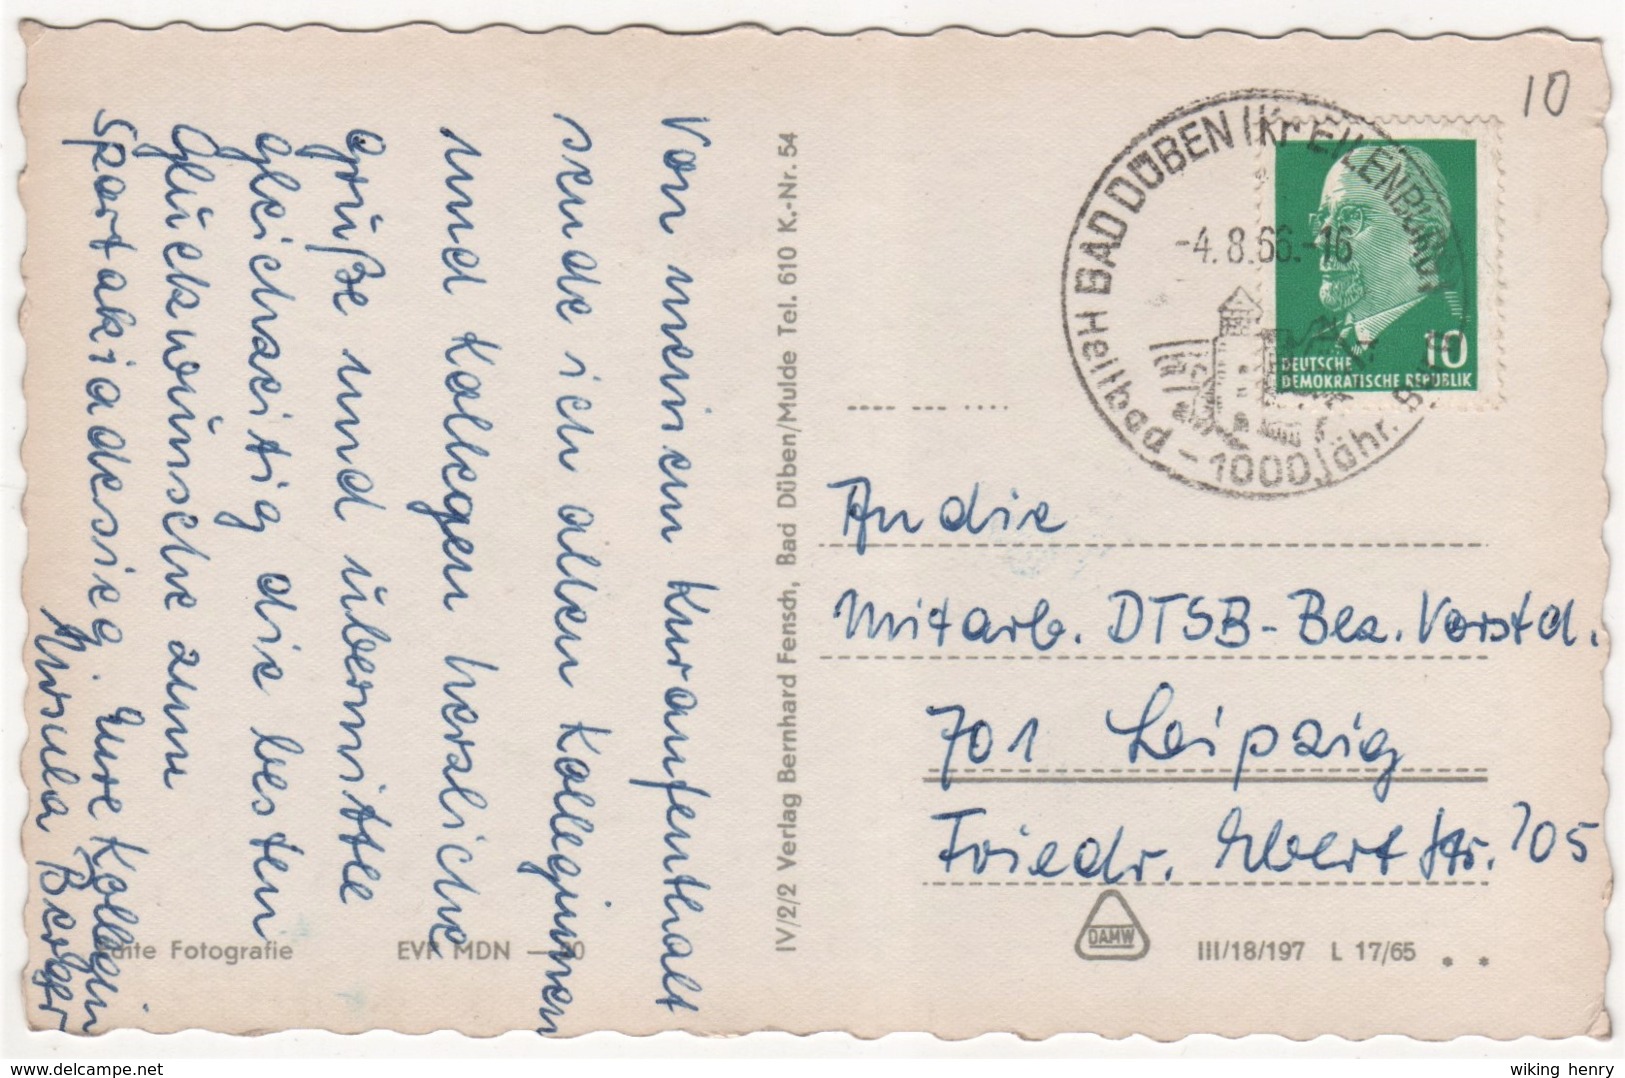 Von meinem Kuraufenthalt
sende ich allen Kolleginnen
und Kollegen herzliche
Grüße und übermittle
gleichzeitig die besten
Glückwünsche zum
Spartakiadesieg. Eure Kollegin
Ursula
IV/2/2 Verlag Bernhard Fensch, Bad Düben/Mulde Tel. 610 K.-Nr. 54
10
BAD DÜBEN (Kr EILENBURG)
-4.8.66.-16
Heilbad - 1000 jähr.
10
DEUTSCHE
DEMOKRATISCHE REPUBLIK
An die
Mitarb. DTSB-Bez. Vorstd.
701 Leipzig
Friedr. Ebert Str. 105
Fotografie EVP MDN
DAMW
III/18/197 L 17/65 * *
wiking henry